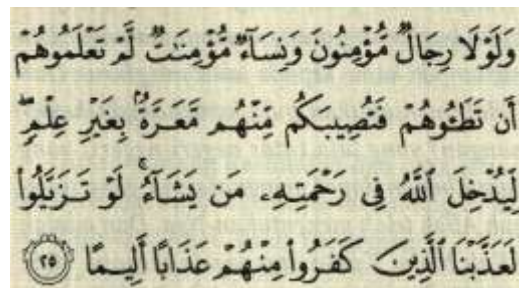 وَلَوْلَا رِجَالٌ مُّؤْمِنُونَ وَنِسَآءٌ مُّؤْمِنَٰتٌ لَّمْ تَعْلَمُوهُمْ
أَن تَطَـُٔوهُمْ فَتُصِيبَكُم مِّنْهُم مَّعَرَّةٌۢ بِغَيْرِ عِلْمٍۖ
لِّيُدْخِلَ ٱللَّهُ فِى رَحْمَتِهِۦ مَن يَشَآءُۚ لَوْ تَزَيَّلُوا۟
لَعَذَّبْنَا ٱلَّذِينَ كَفَرُوا۟ مِنْهُمْ عَذَابًا أَلِيمًا ٢٥